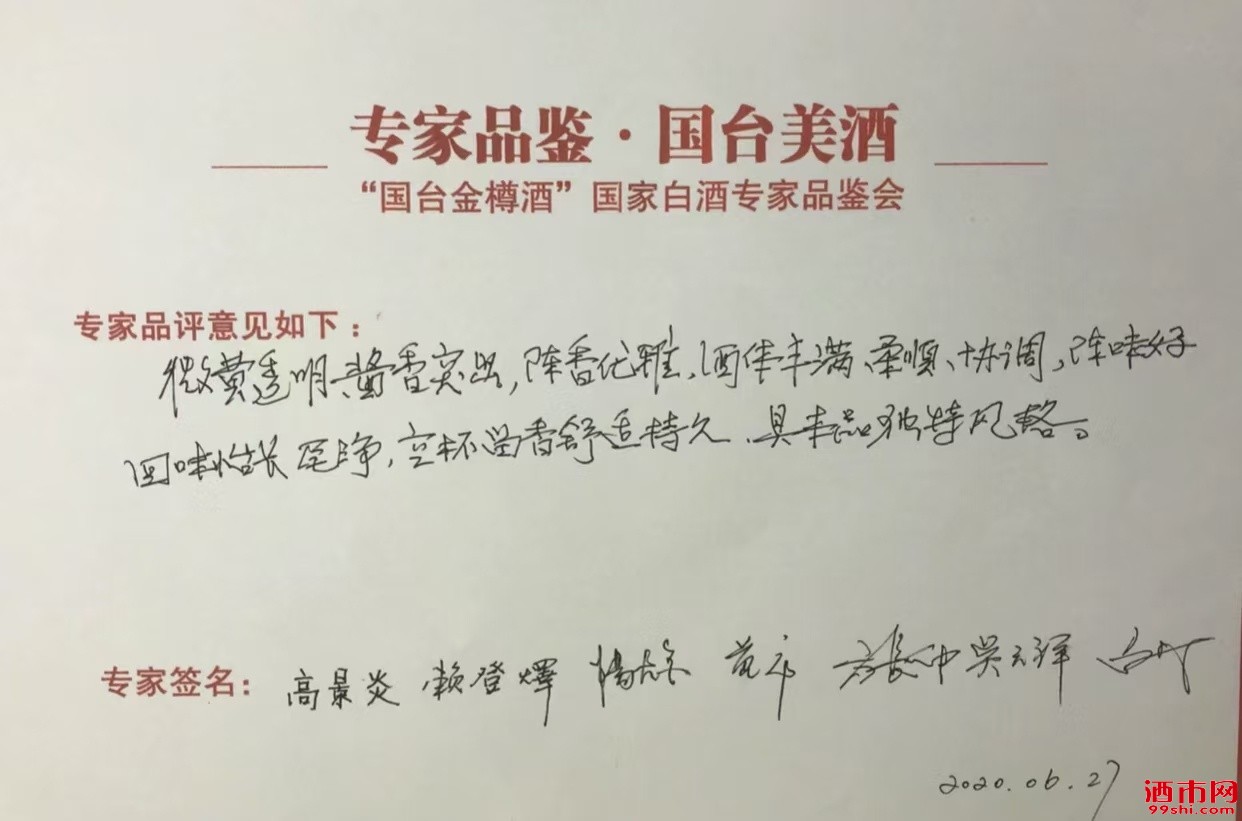 专家品鉴·国台美酒
“国台金樽酒”国家白酒专家品鉴会
专家品评意见如下：
微黄透明、酱香突出，陈香优雅，酒体丰满、柔顺、协调，陈味好
回味悠长 尾净，空杯留香舒适持久、具本品独特风格。
专家签名： 高景炎 赖登燡
2020.06.27
酒市网
99shi.com